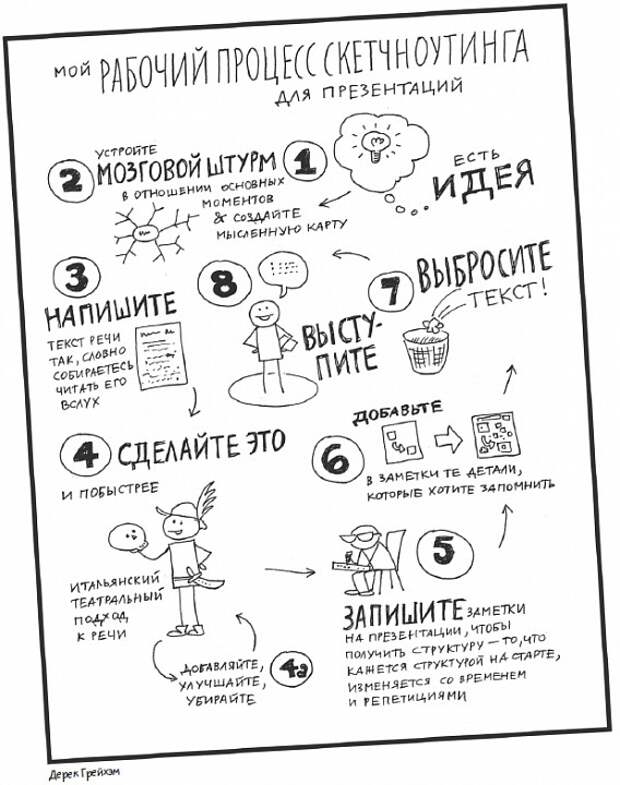 МОЙ РАБОЧИЙ ПРОЦЕСС СКЕТЧНОУТИНГА
ДЛЯ ПРЕЗЕНТАЦИЙ
1
ЕСТЬ
ИДЕЯ
2
УСТРОЙТЕ
МОЗГОВОЙ ШТУРМ
В ОТНОШЕНИИ ОСНОВНЫХ
МОМЕНТОВ
& СОЗДАЙТЕ
МЫСЛЕННУЮ КАРТУ
3
НАПИШИТЕ
ТЕКСТ РЕЧИ
ТАК, СЛОВНО
СОБИРАЕТЕСЬ
ЧИТАТЬ ЕГО
ВСЛУХ
4 СДЕЛАЙТЕ ЭТО
И ПОБЫСТРЕЕ
ИТАЛЬЯНСКИЙ
ТЕАТРАЛЬНЫЙ
ПОДХОД
К РЕЧИ
4а
ДОБАВЛЯЙТЕ,
УЛУЧШАЙТЕ,
УБИРАЙТЕ
5
ЗАПИШИТЕ ЗАМЕТКИ
НА ПРЕЗЕНТАЦИИ, ЧТОБЫ
ПОЛУЧИТЬ СТРУКТУРУ — ТО, ЧТО
КАЖЕТСЯ СТРУКТУРОЙ НА СТАРТЕ,
ИЗМЕНЯЕТСЯ СО ВРЕМЕНЕМ
И РЕПЕТИЦИЯМИ
6
ДОБАВЬТЕ
В ЗАМЕТКИ ТЕ ДЕТАЛИ,
КОТОРЫЕ ХОТИТЕ ЗАПОМНИТЬ
7 ВЫБРОСИТЕ
ТЕКСТ!
8
ВЫСТУ-
ПИТЕ
Дерек Грейхэм